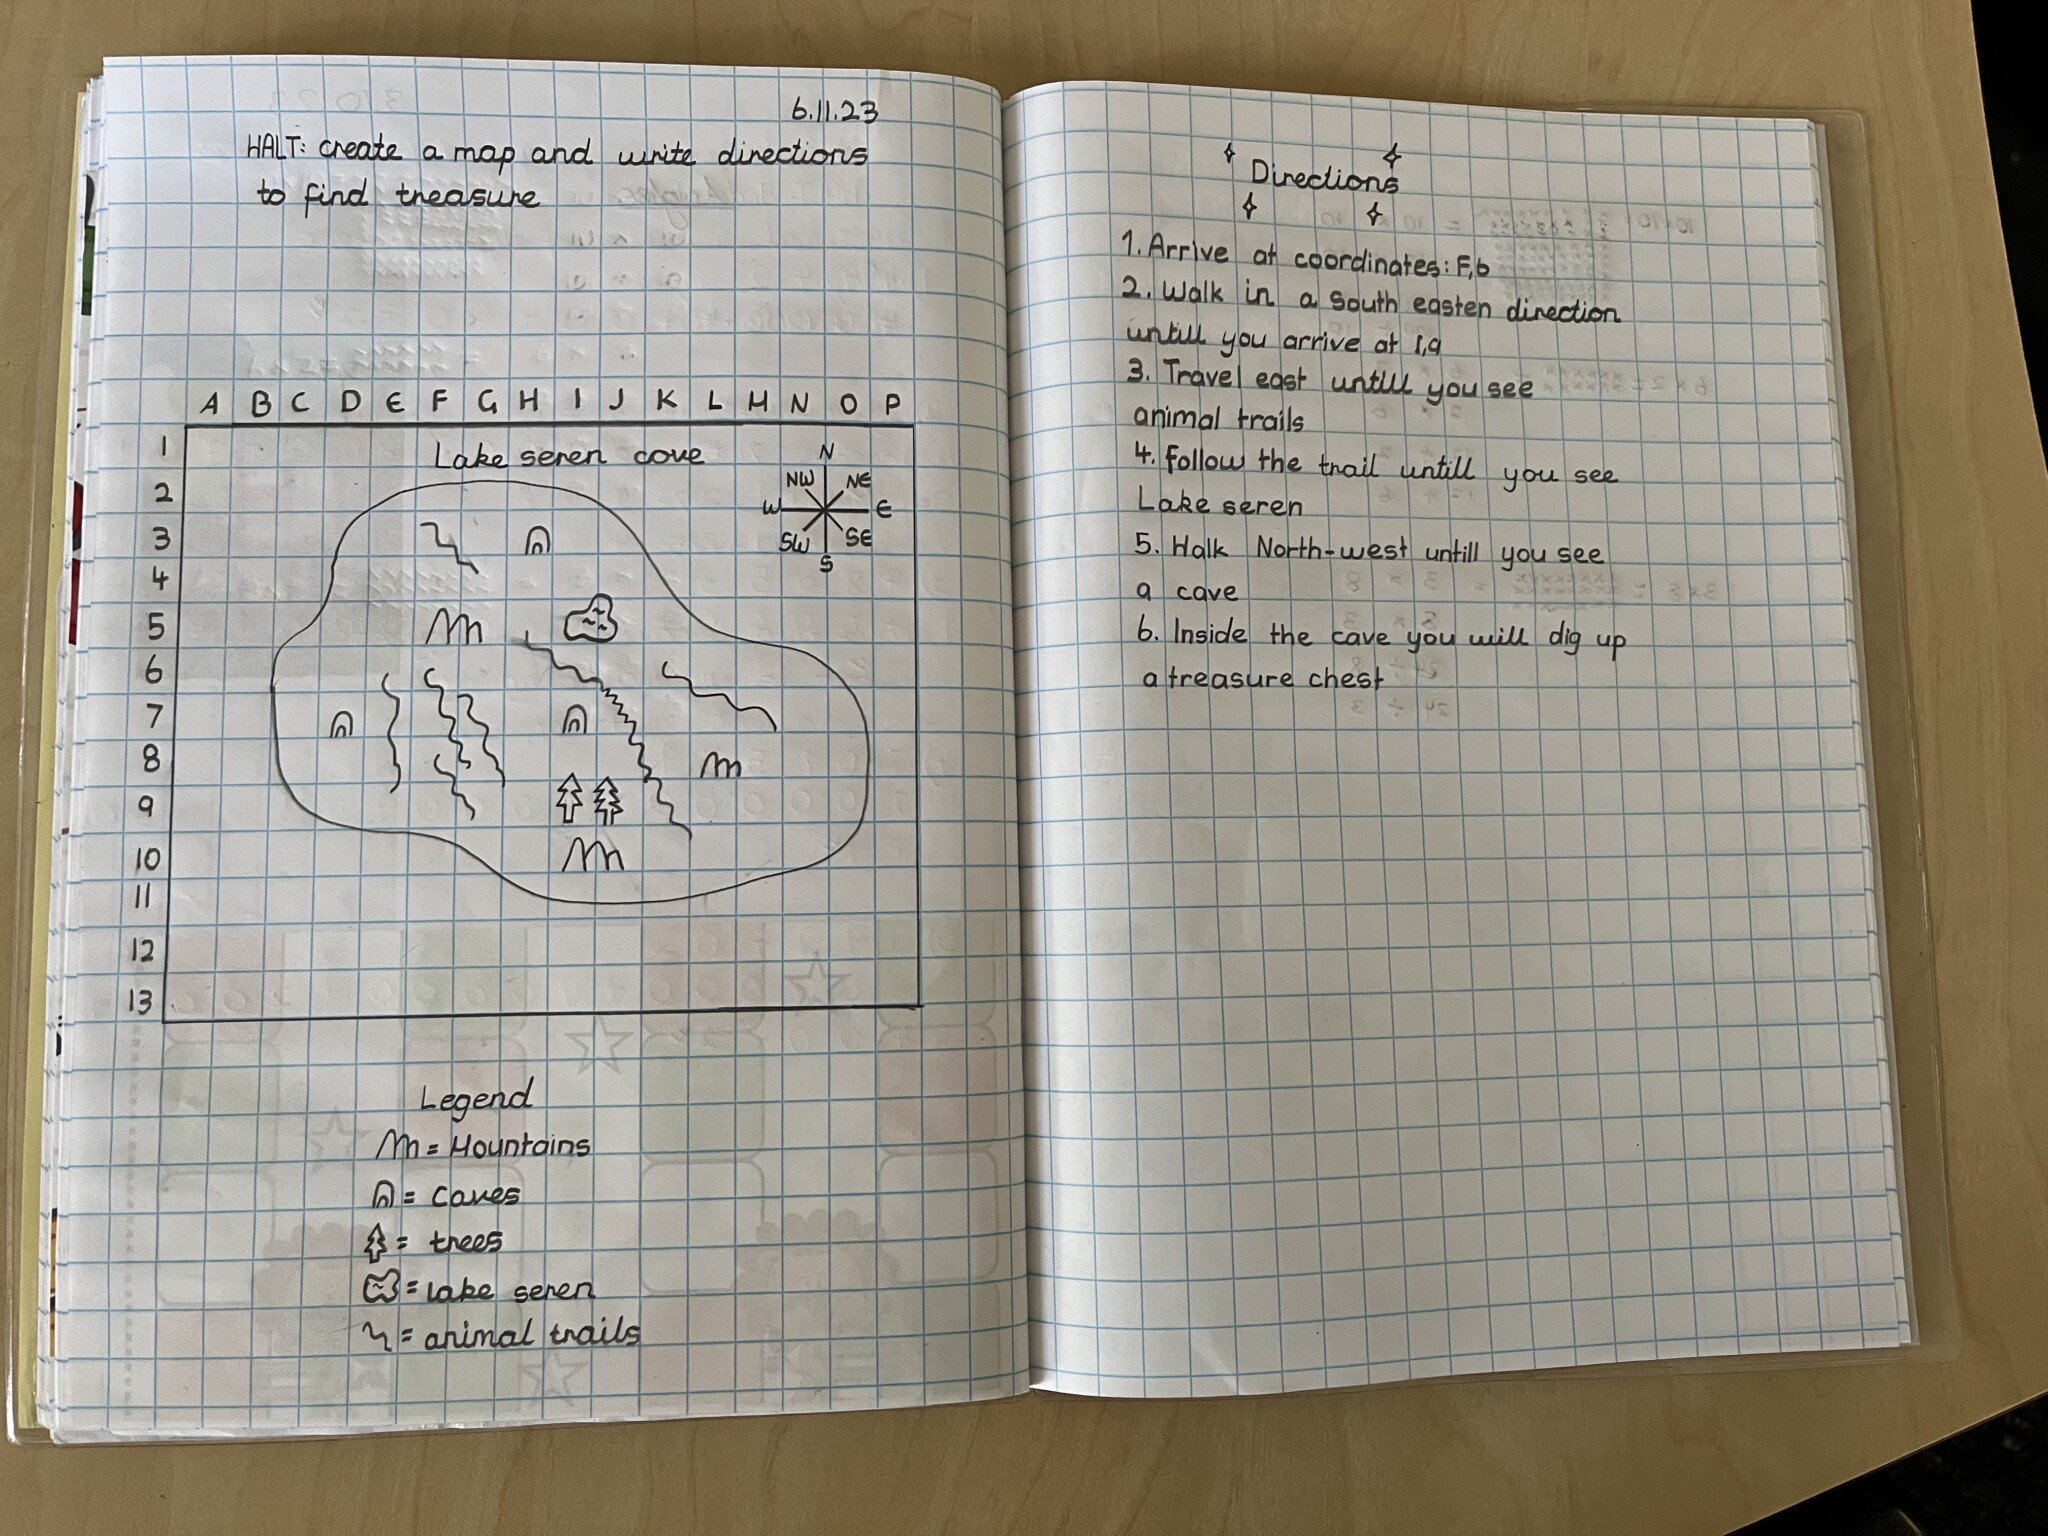 6.11.23
HALT: create a map and write directions
to find treasure
A B C D E F G H I J K L M N O P
1
Lake seren cove
N
2
NW NE
W E
3
SW SE
S
4
5
6
7
8
9
10
11
12
13
Legend
= Mountains
= caves
= trees
= lake seren
= animal trails
Directions
1. Arrive at coordinates: F,6
2. Walk in a south easten direction
untill you arrive at I,9
3. Travel east untill you see
animal trails
4. Follow the trail untill you see
Lake seren
5. Walk North-west untill you see
a cave
6. Inside the cave you will dig up
a treasure chest